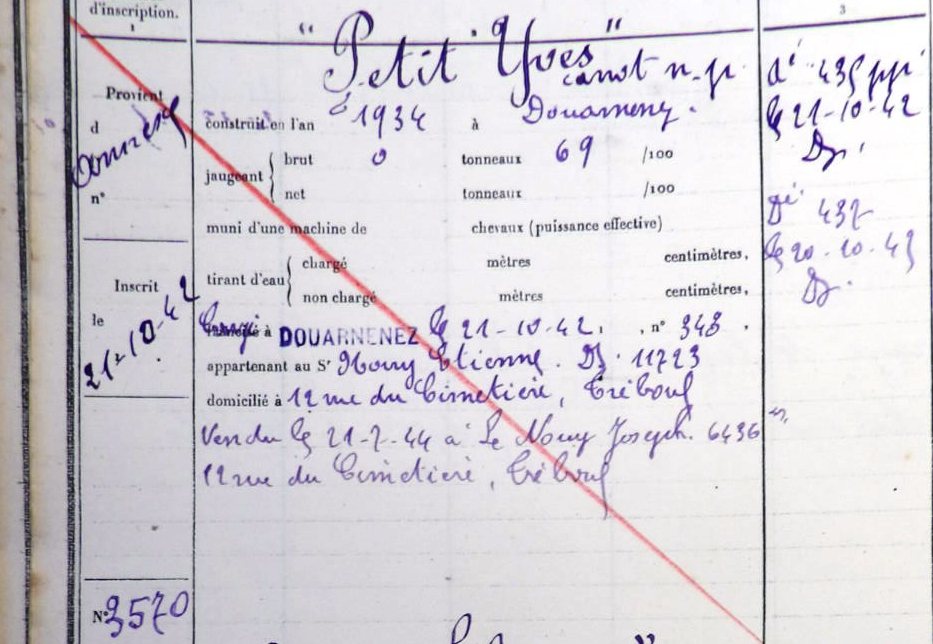 d'inscription.
1
3
" Petit Yves "
canot n.p.
Provient
d
n°
construit en l'an 1934 à Douarnenez.
jaugeant
brut 0 tonneaux 69 /100
net tonneaux /100
muni d'une machine de chevaux (puissance effective)
tirant d'eau
chargé mètres centimètres,
non chargé mètres centimètres,
Inscrit
le 21-10-42
à DOUARNENEZ le 21-10-42. , n° 343 .
appartenant au Sr Etienne. Dz. 11723
domicilié à 12 rue du Cimetière, Tréboul
Vendu le 21-7-44 à Le Nouy Joseph. 6436
12 rue du Cimetière, Tréboul
435
le 21-10-42
Dz.
437
le 20.10.43
Dz.
N° 3570